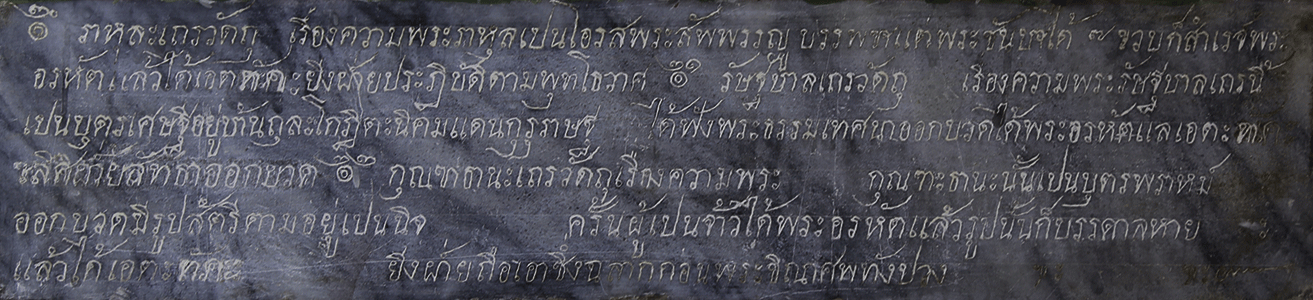 ๏ ราหุละเถรวัดถุ เรื่องความพระราหุลเปนโอรสพระสัพพรรญู บรรพชาแต่พระชันษาได้ ๗ ขวบก็สำเรจ์พระ
อรหัตแล้วได้เอตทัคะยิ่งฝ่ายประฏิบัติตามพุทโธวาท ๑๑ รัษฐบาลเถรวัดถุ เรื่องความพระรัษฐบาลเถรนี้
เปนบุตรเศษฐีอยู่ทันถุละโกฏิตะนิคมแดนกุรุราษฐ ได้ฟังพระธรรมเทศนาออกบวดได้พระอรหัตแลเอตะ
ออกบวด ๑๒ กุณฑธานะเถรวัดถุเรื่องความพระ กุณฑะธานะนั้นเปนบุตรพราหม์
ออกบวดมีรูปสัตรีตามอยู่เปนนิจ ครั้นผู้เปนเจ้าได้พระอรหัตแล้วรูปนั้นก็บรรดาลหาย
แล้วได้เอตะทัคะ ยิ่งฝ่ายถือเอาซึ่งฉลากก่อนพระขิณาศพทังปวง